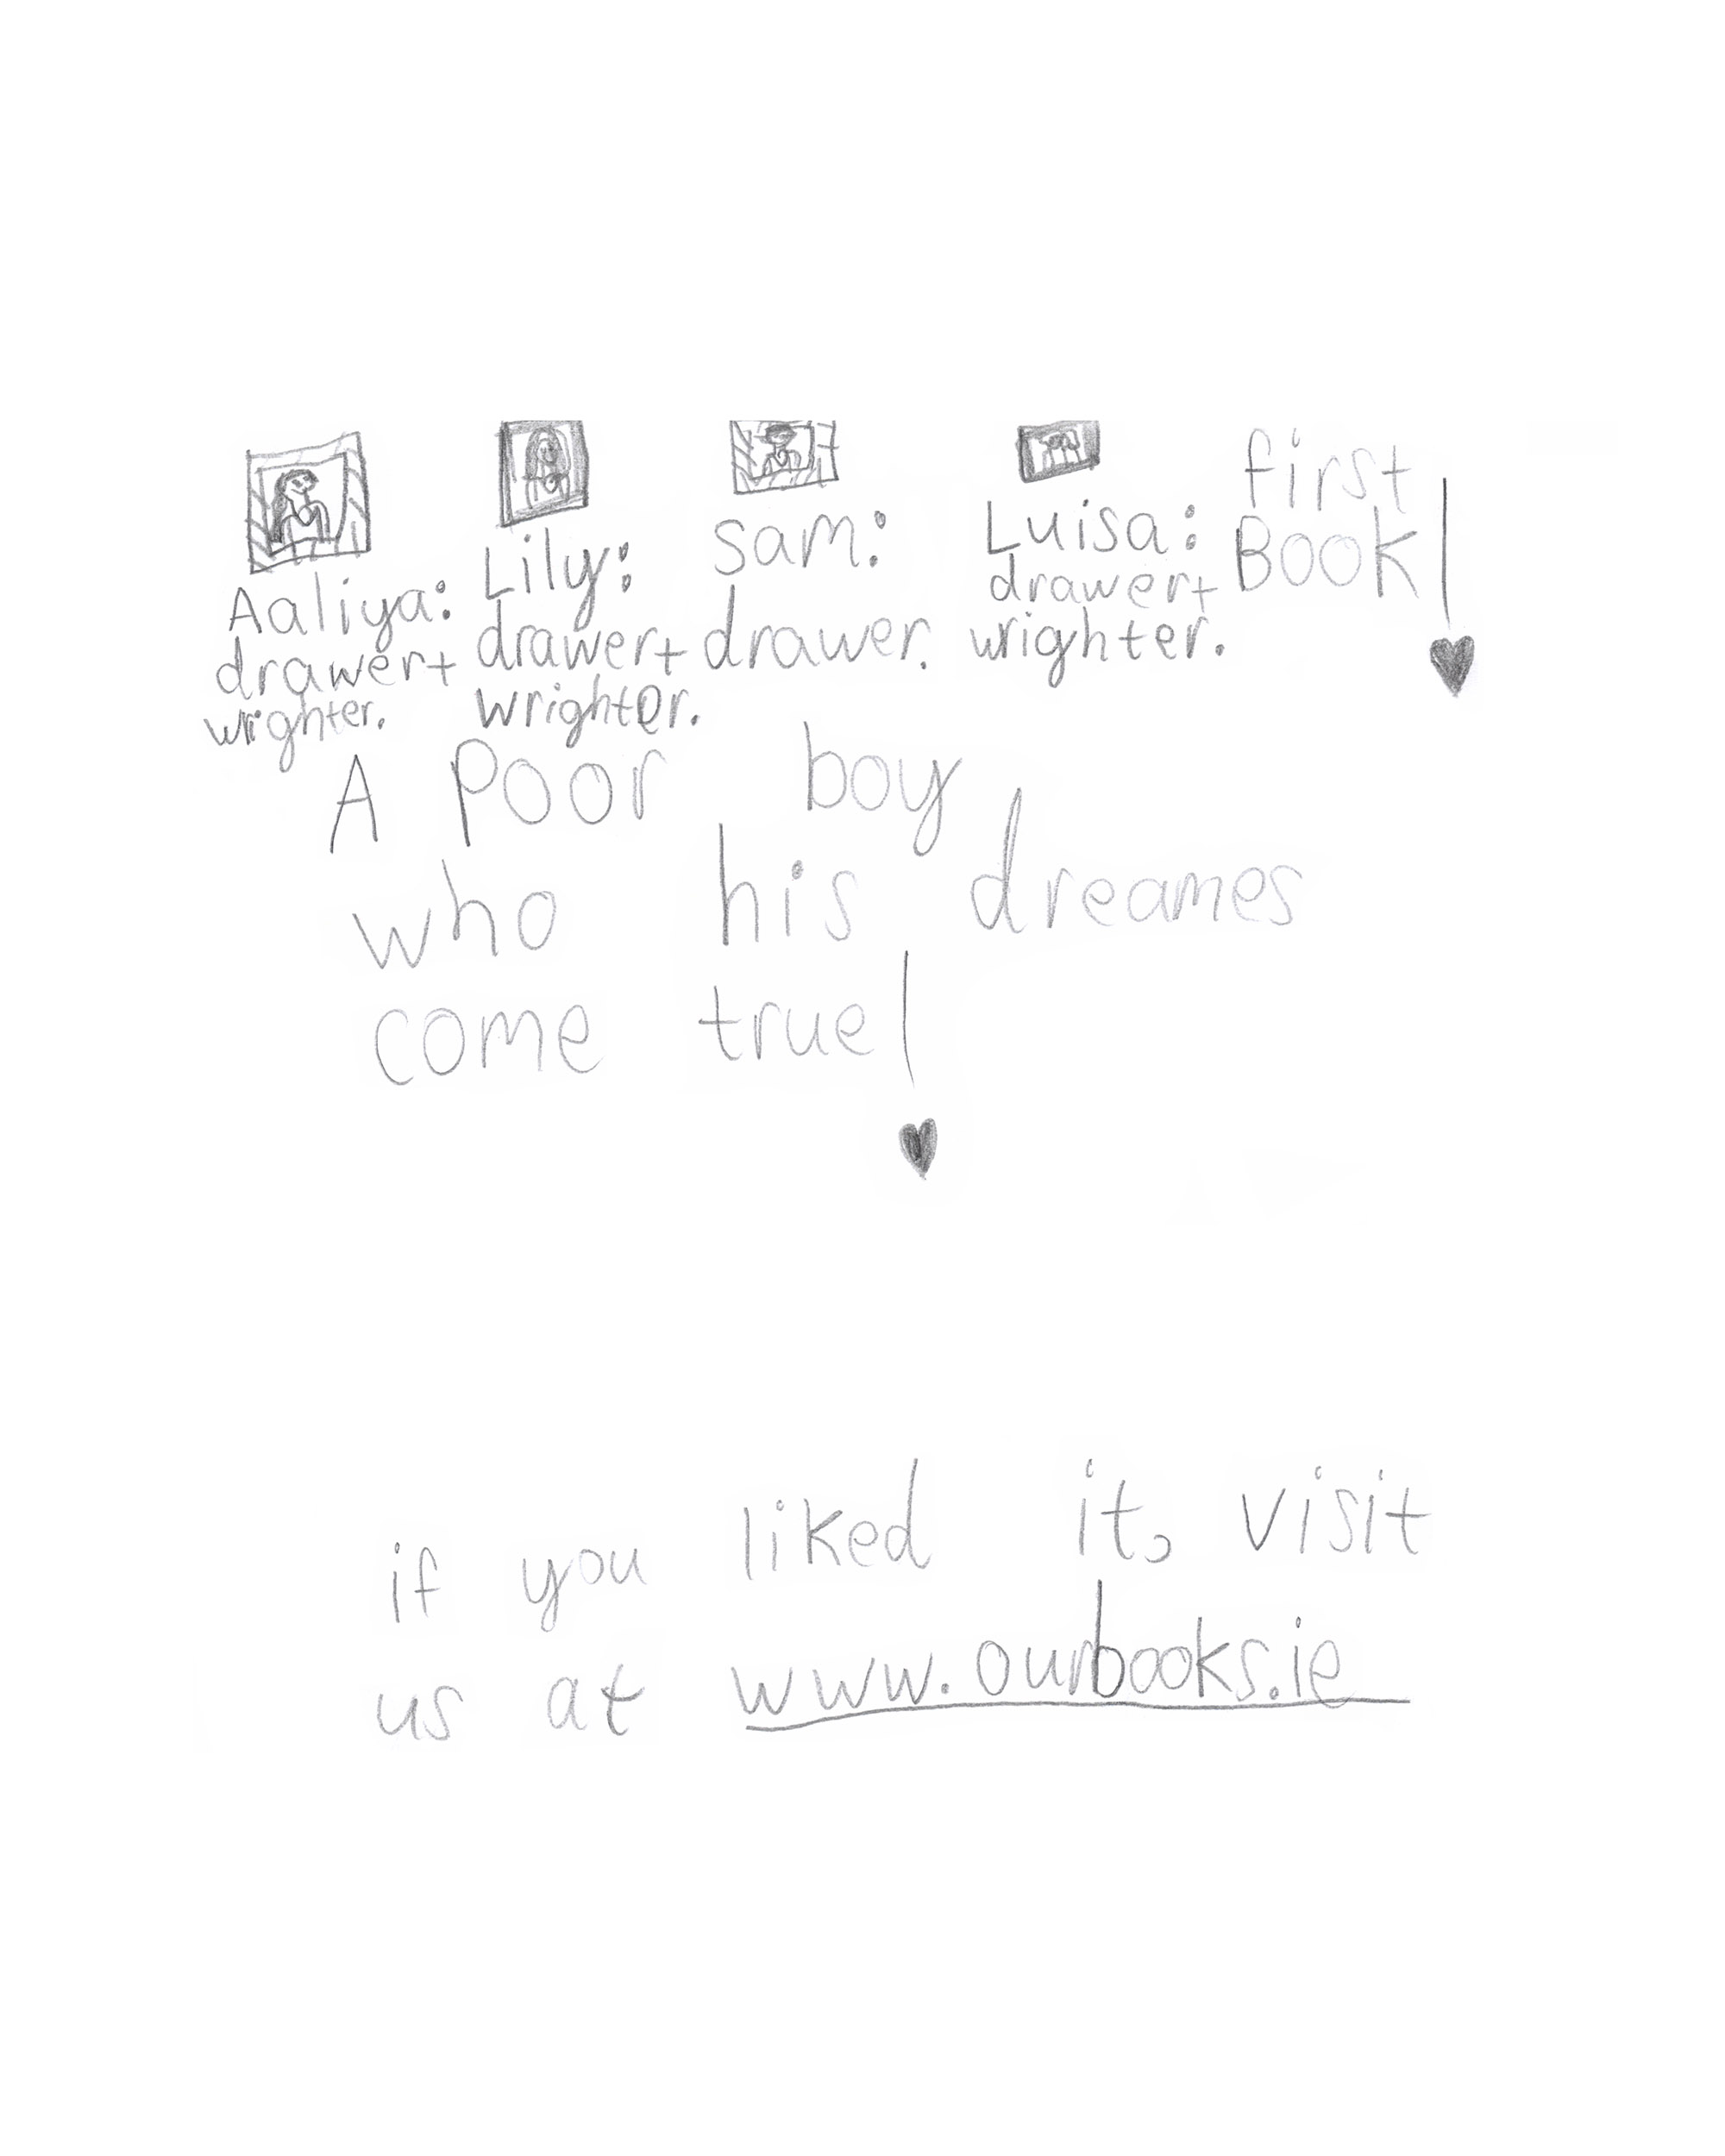 Aaliya:
drawer+
wrighter.
Lily:
drawer+
wrighter.
Sam:
drawer.
Luisa:
drawer+
wrighter.
first
Book!
A Poor boy
who his dreames
come true!
if you liked it, visit
us at www.ourbooks.ie